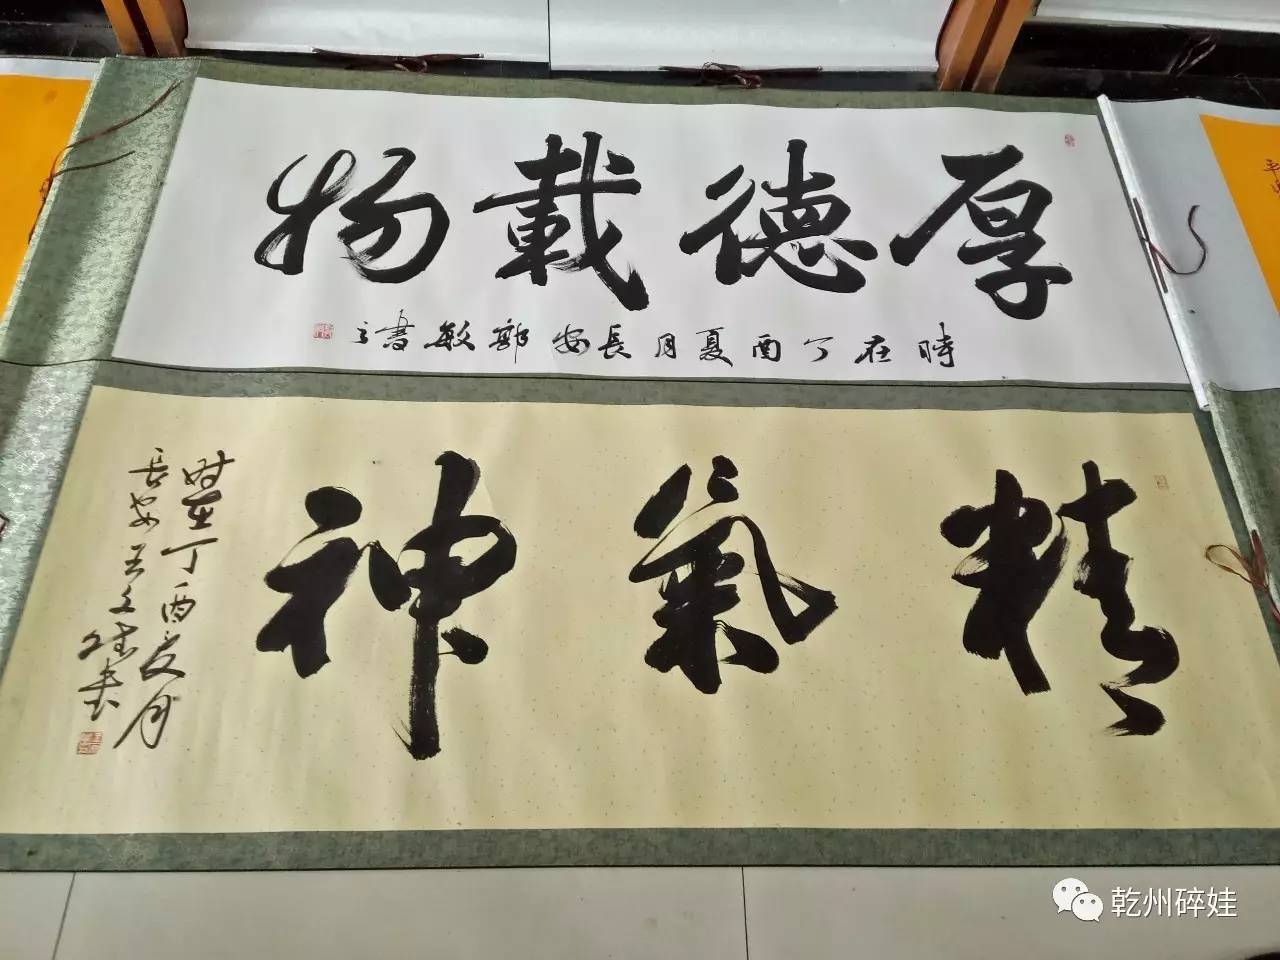 厚德載物
時在丁酉夏月長安郭敏書之
精氣神
時在丁酉夏月
長安王文
書
乾州碎娃